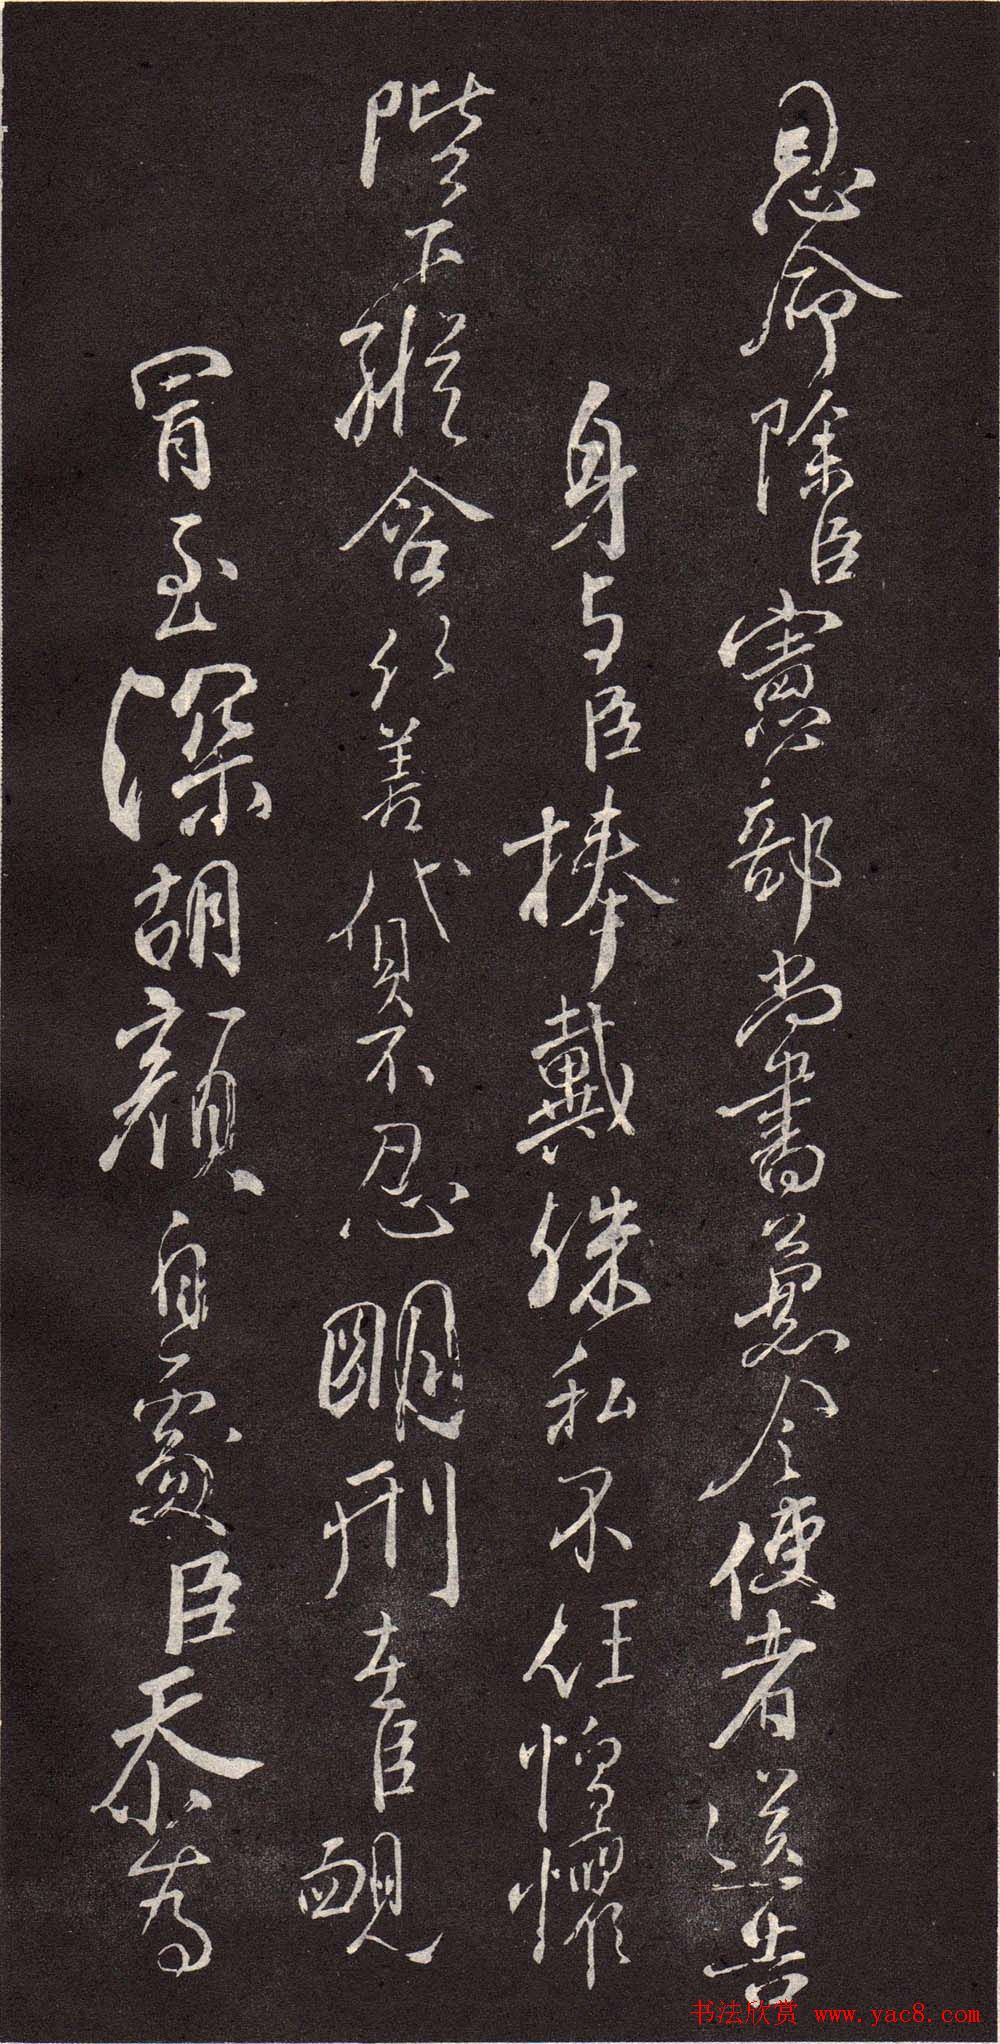 恩命除臣憲部尚書兼令使者送告
身与臣捧戴殊私不任惶懼
陛下縱含弘善貸不忍明刑在臣靦
冒至深胡顏自處臣忝為
书法欣赏 www.yac8.com